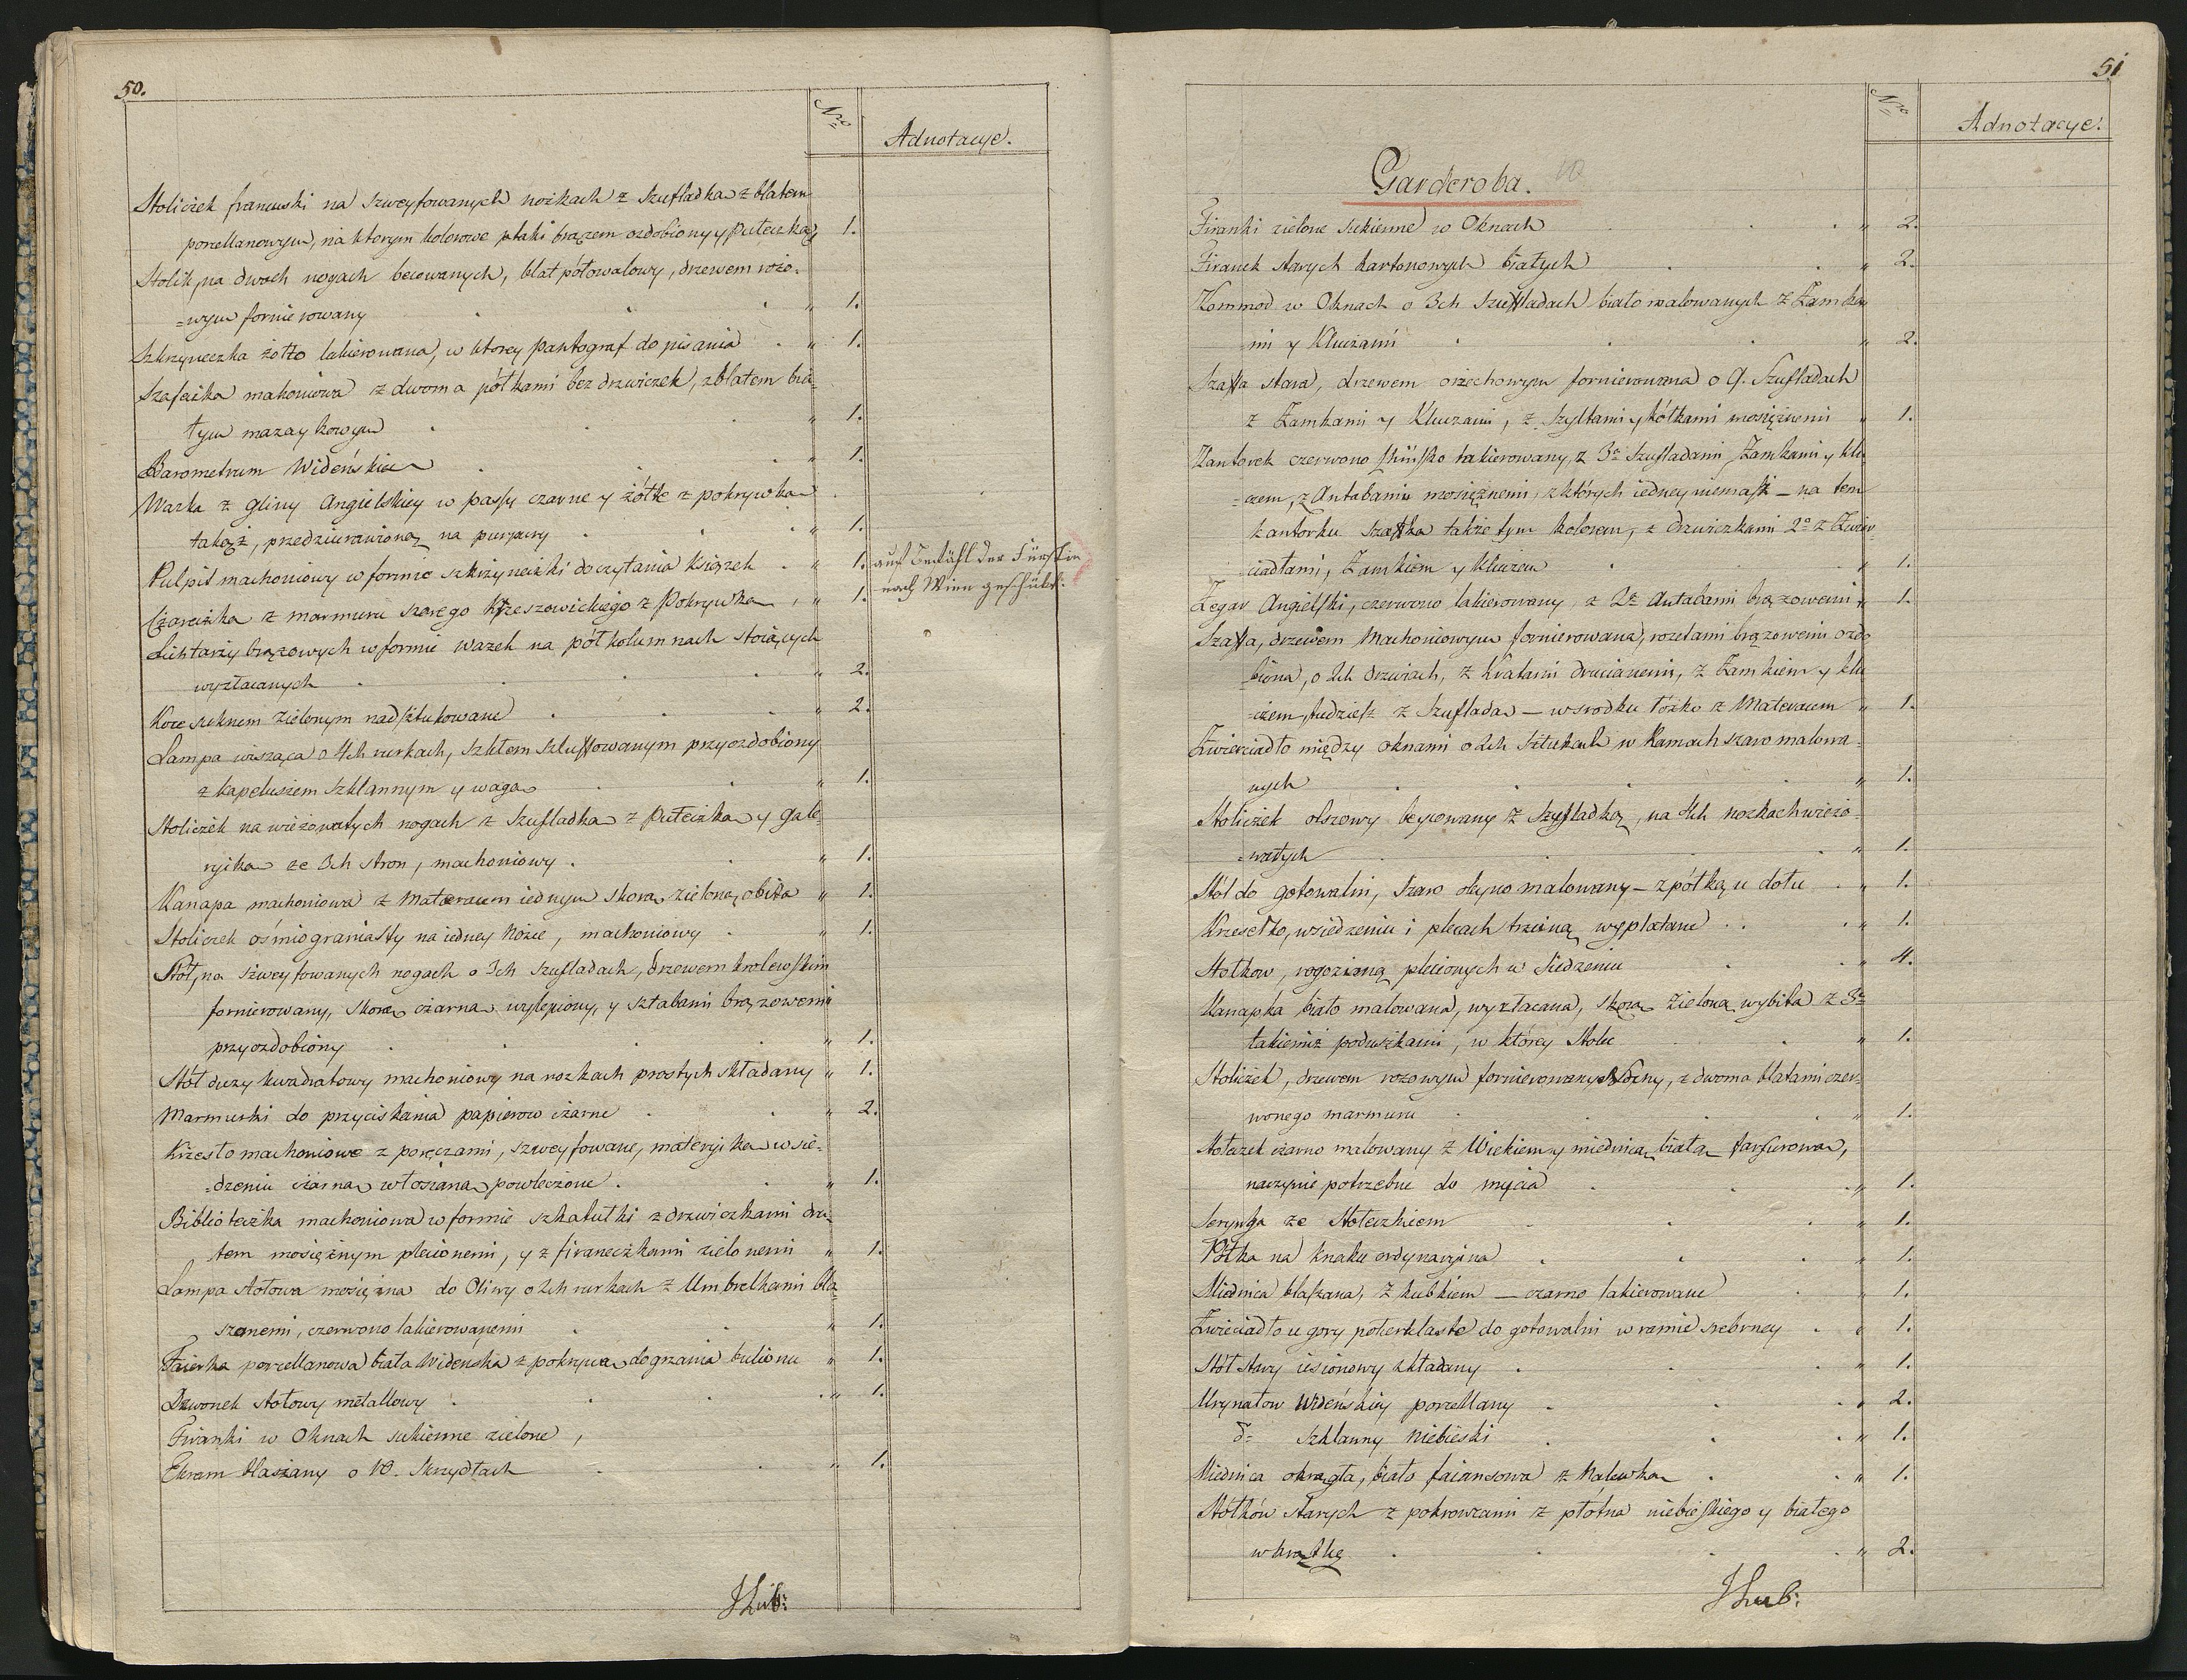 50.
Nro
Adnotacye.
Stoliczek francuski na szweyfowanych nożkach z szufladką z blatem
porcellanowym, na ktorym kolorowe ptaki brązem ozdobiony y puteczką " 1.
Stolik, na dwoch nogach becowanych, blat półowalowy, drzewem rożo-
=wym fornierowany " 1.
Szkrzyneczka żółto lakierowana, w ktorey pantograf do pisania " 1.
Szafeczka mahoniowa z dwoma półkami bez drzwiczek, z blatem bia-
łym mazaykowym " 1.
Barometrum Wideńskie " 1.
Wazka z gliny Angielskiey w passy czarne y żółte z pokrywką
takąż, przedziurawioną na purpury " 1.
Pulpit machoniowy w formie szkrzyneczki do czytania Książek " 1. auf Befähl der Fürstin
nach Wien geschükt.
Czareczka z marmuru szarego Krzeszowickiego z Pokrywką " 1.
Lichtarzy brązowych w formie wazek na półkolumnach stoiących
wyzłacanych " 2.
Koce suknem zielonym nadsztukowane " 2.
Lampa wisząca o 4ch rurkach, szkłem szluffowanym przyozdobiony
z kapeluszem szklannym y wagą " 1.
Stoliczek na wieżowatych nogach z szufladką z Puteczką y gale-
ryiką ze 3ch stron, machoniowy " 1.
Kanapa machoniowa z Materacem iednym skorą zieloną obita " 1.
Stoliczek ośmiograniasty na iedney Nożce, machoniowy " 1.
Stół, na szweyfowanych nogach o 3ch szufladach, drzewem krolewskim
fornierowany, skorą czarną wylepiony, y sztabami brązowemi
przyozdobiony " 1.
Stół duży kwadratowy machoniowy na nożkach prostych składany " 1.
Marmurki do przyciskania papierow czarne " 2.
Krzesło machoniowe z poręczami, szweyfowane, materyiką w sie-
=dzeniu czarną włosianą powleczone " 1.
Biblioteczka machoniowa w formie szkatułki z drzwiczkami dru-
tem mosiężnym plecionemi, y z firaneczkami zielonemi " 1.
Lampa stołowa mosiężna do Oliwy o 2ch rurkach z Umbrelkami bla-
szanemi, czerwono lakierowanemi " 1.
Faierka porcellanowa biała Widenska z pokrywą do grzania bulionu " 1.
Dzwonek stołowy metallowy " 1.
Firanki w Oknach sukienne zielone,
Ekram blaszany o 10. Skrzydłach " 1.
JLub:
51
Nro
Adnotacye.
Garderoba. 10
Firanki zielone sukienne w Oknach " 2.
Firanek starych kartonowych białych " 2.
Kommod w Oknach o 3ch Szuffladach biało malowanych z Zamka-
mi y Kluczami " 2.
Szaffa stara, drzewem orzechowym fornierowana o 9. Szufladach
z Zamkami y Kluczami, z Szyltami y kółkami mosiężnemi " 1.
Kantorek czerwono chińsko lakierowany, z 3a Szufladami Zamkami y klu-
=czem, z Antabami mosiężnemi, z których iedney niemasz – na tem
kantorku szaffka także tym kolorem, z drzwiczkami 2o z Zwier-
ciadłami, Zamkiem y kluczem " 1.
Zegar Angielski, czerwono lakierowany, z 2a Antabami brązowemi " 1.
Szaffa, drzewem Machoniowym fornierowana, rozetami brązowemi ozdo-
biona, o 2ch drzwiach, z Kratami drucianemi, z Zamkiem y klu-
=czem, tudziesz z Szufladą – w srodku łóżko z Materacem " 1.
Zwierciadło między oknami o 2ch Sztukach w Ramach szaro malowa-
nych " 1.
Stoliczek olszowy beycowany z Szufladką, na 4ch nożkach wieżo-
=watych " 1.
Stół do gotowalni, szaro oleyno malowany – z półką u dołu " 1.
Krzesełko, w siedzeniu i plecach trzciną wyplatane " 1.
Stołkow, rogoziną plecionych w siedzeniu " 4.
Kanapka biało malowana, wyzłacana, skorą zieloną wybita z 3a
takiemiż poduszkami, w którey Stolec " 1.
Stoliczek, drzewem rożowym fornierowany Nocny, z dwoma blatami czer-
wonego marmuru " 1.
Stołeczek czarno malowany z Wiekiem y miednicą białą farfurową,
naczynie potrzebne do mycia " 1.
Serynga ze Stołeczkiem " 1.
Półka na knaku ordynaryina " 1.
Miednica blaszana, z kubkiem – czarno lakierowane " 1.
Zwierciadło u gory połerklaste do gotowalni w ramie srebrney " 1.
Stół stary iesionowy składany " 1.
Urynałow Wideńskiey porcellany " 2.
do Szklanny Niebieski " 1.
Miednica okrągła, biało faiansowa z Nalewką " 1.
Stółków starych z pokrowcami z płótna niebieskiego y białego
w kratkę " 2.
JLub: